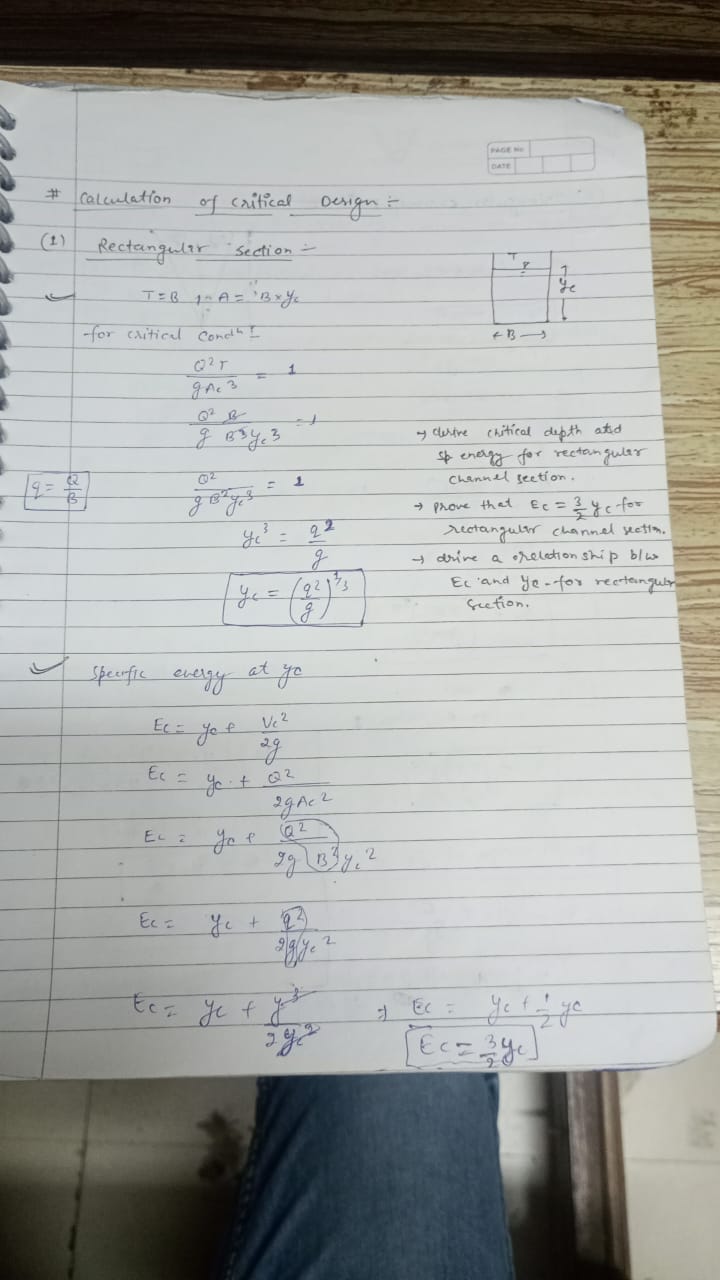 PAGE No
DATE
# Calculation of critical Design :-
(1) Rectangular section :-
T
yc
← B →
T = B , A = B × yc
for critical Condn :-
Q²T / gAc³ = 1
Q² B / g B³yc³ = 1
q = Q/B
Q² / g B²yc³ = 1
yc³ = q² / g
yc = (q²/g)^1/3
→ derive critical depth and
sp energy for rectangular
channel section.
→ prove that Ec = 3/2 yc for
rectangular channel section.
→ drive a relationship b/w
Ec and yc for rectangular
section.
Specific energy at yc
Ec = yc + Vc² / 2g
Ec = yc + Q² / 2gAc²
Ec = yc + Q² / 2g B² yc²
Ec = yc + q² / 2g yc²
Ec = yc + y³ / 2yc² ⇒ Ec = yc + 1/2 yc
Ec = 3/2 yc